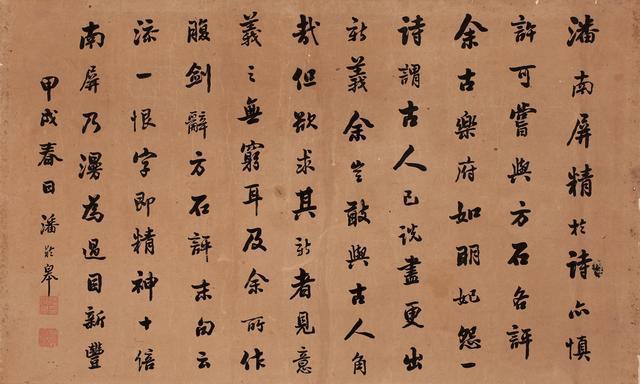 潘南屏精於詩亦慎
許可嘗與方石各評
余古樂府如明妃怨一
詩謂古人已說盡更出
新義余豈敢與古人角
哉但欲求其新者見意
義之無窮耳及余所作
腹劍辭方石評末句云
添一恨字即精神十倍
南屏乃漫為過目新豐
甲戌春日 潘齡皋